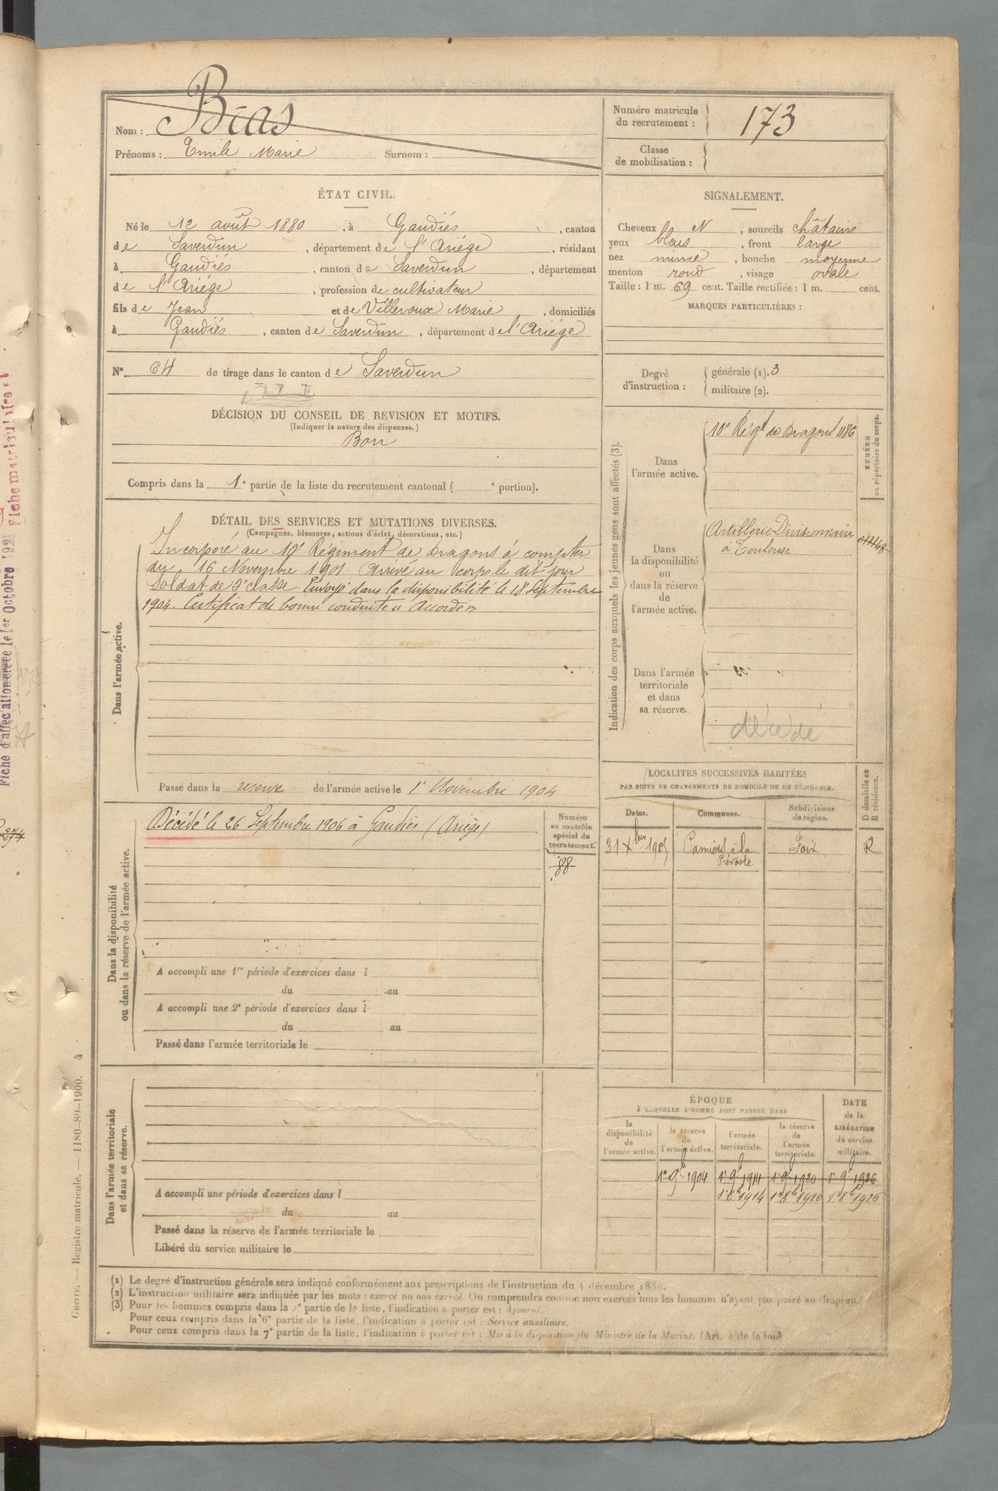 Nom : Bias
Prénoms : Emile Marie Surnom :
Numéro matricule du recrutement : 173
Classe de mobilisation :
ÉTAT CIVIL.
Né le 12 août 1880, à Gaudiés, canton
de Saverdun, département de l'Ariège, résidant
à Gaudiés, canton de Saverdun, département
de l'Ariège, profession de cultivateur
fils de Jean et de Villeroux Marie, domiciliés
à Gaudiés, canton de Saverdun, département de l'Ariège
N° 64 de tirage dans le canton de Saverdun
DÉCISION DU CONSEIL DE REVISION ET MOTIFS.
(Indiquer la nature des dispenses.)
Bon
Compris dans la 1e partie de la liste du recrutement cantonal ( e portion).
SIGNALEMENT.
Cheveux N, sourcils châtains
yeux bleus, front large
nez mince, bouche moyenne
menton rond, visage ovale
Taille : 1 m. 69 cent. Taille rectifiée : 1 m. cent.
MARQUES PARTICULIÈRES :
Degré d'instruction :
générale (1). 3
militaire (2).
DÉTAIL DES SERVICES ET MUTATIONS DIVERSES.
(Campagnes, blessures, actions d'éclat, décorations, etc.)
Dans l'armée active.
Incorporé au 10e Régiment de Dragons à compter
du 16 Novembre 1901 Arrivé au corps le dit jour
Soldat de 2e classe. Envoyé dans la disponibilité le 18 Septembre
1904. Certificat de bonne conduite "Accordé"
Passé dans la réserve de l'armée active le 1er Novembre 1904
Indication des corps auxquels les jeunes gens sont affectés (3).
NUMÉRO au répertoire du corps.
Dans l'armée active.
10e Régt de Dragons 1186
Dans la disponibilité ou dans la réserve de l'armée active.
Artillerie Divisionnaire
à Toulouse
Dans l'armée territoriale et dans sa réserve.
décédé
Dans la disponibilité ou dans la réserve de l'armée active.
Décédé le 26 Septembre 1906 à Gaudiès (Ariège)
Numéro au contrôle spécial du recrutement.
88
A accompli une 1re période d'exercices dans l
du au
A accompli une 2e période d'exercices dans l
du au
Passé dans l'armée territoriale le
LOCALITÉS SUCCESSIVES HABITÉES
PAR SUITE DE CHANGEMENTS DE DOMICILE OU DE RÉSIDENCE.
D domicile ou R résidence.
Dates. Communes. Subdivisions de région.
31 Xbre 1905 Foix R
Dans l'armée territoriale et dans sa réserve.
A accompli une période d'exercices dans l
du au
Passé dans la réserve de l'armée territoriale le
Libéré du service militaire le
ÉPOQUE
À LAQUELLE L'HOMME DOIT PASSER DANS
DATE de la LIBÉRATION du service militaire.
la disponibilité de l'armée active. la réserve de l'armée active. l'armée territoriale. la réserve de l'armée territoriale.
1er 9bre 1904 1er 9bre 1914 1er 9bre 1920 1er 9bre 1926
1er 8bre 1914 1er 8bre 1920 1er 8bre 1926
(1) Le degré d'instruction générale sera indiqué conformément aux prescriptions de l'instruction du 4 décembre 1889.
(2) L'instruction militaire sera indiquée par les mots : exercé ou non exercé. On comprendra comme non exercés tous les hommes n'ayant pas passé au drapeau.
(3) Pour les hommes compris dans la 5e partie de la liste, l'indication à porter est : Ajourné.
Pour ceux compris dans la 6e partie de la liste, l'indication à porter est : Service auxiliaire.
Pour ceux compris dans la 7e partie de la liste, l'indication à porter est : Mis à la disposition du Ministre de la Marine.
Guerre. — Registre matricule. — 1180-89-1900. 4